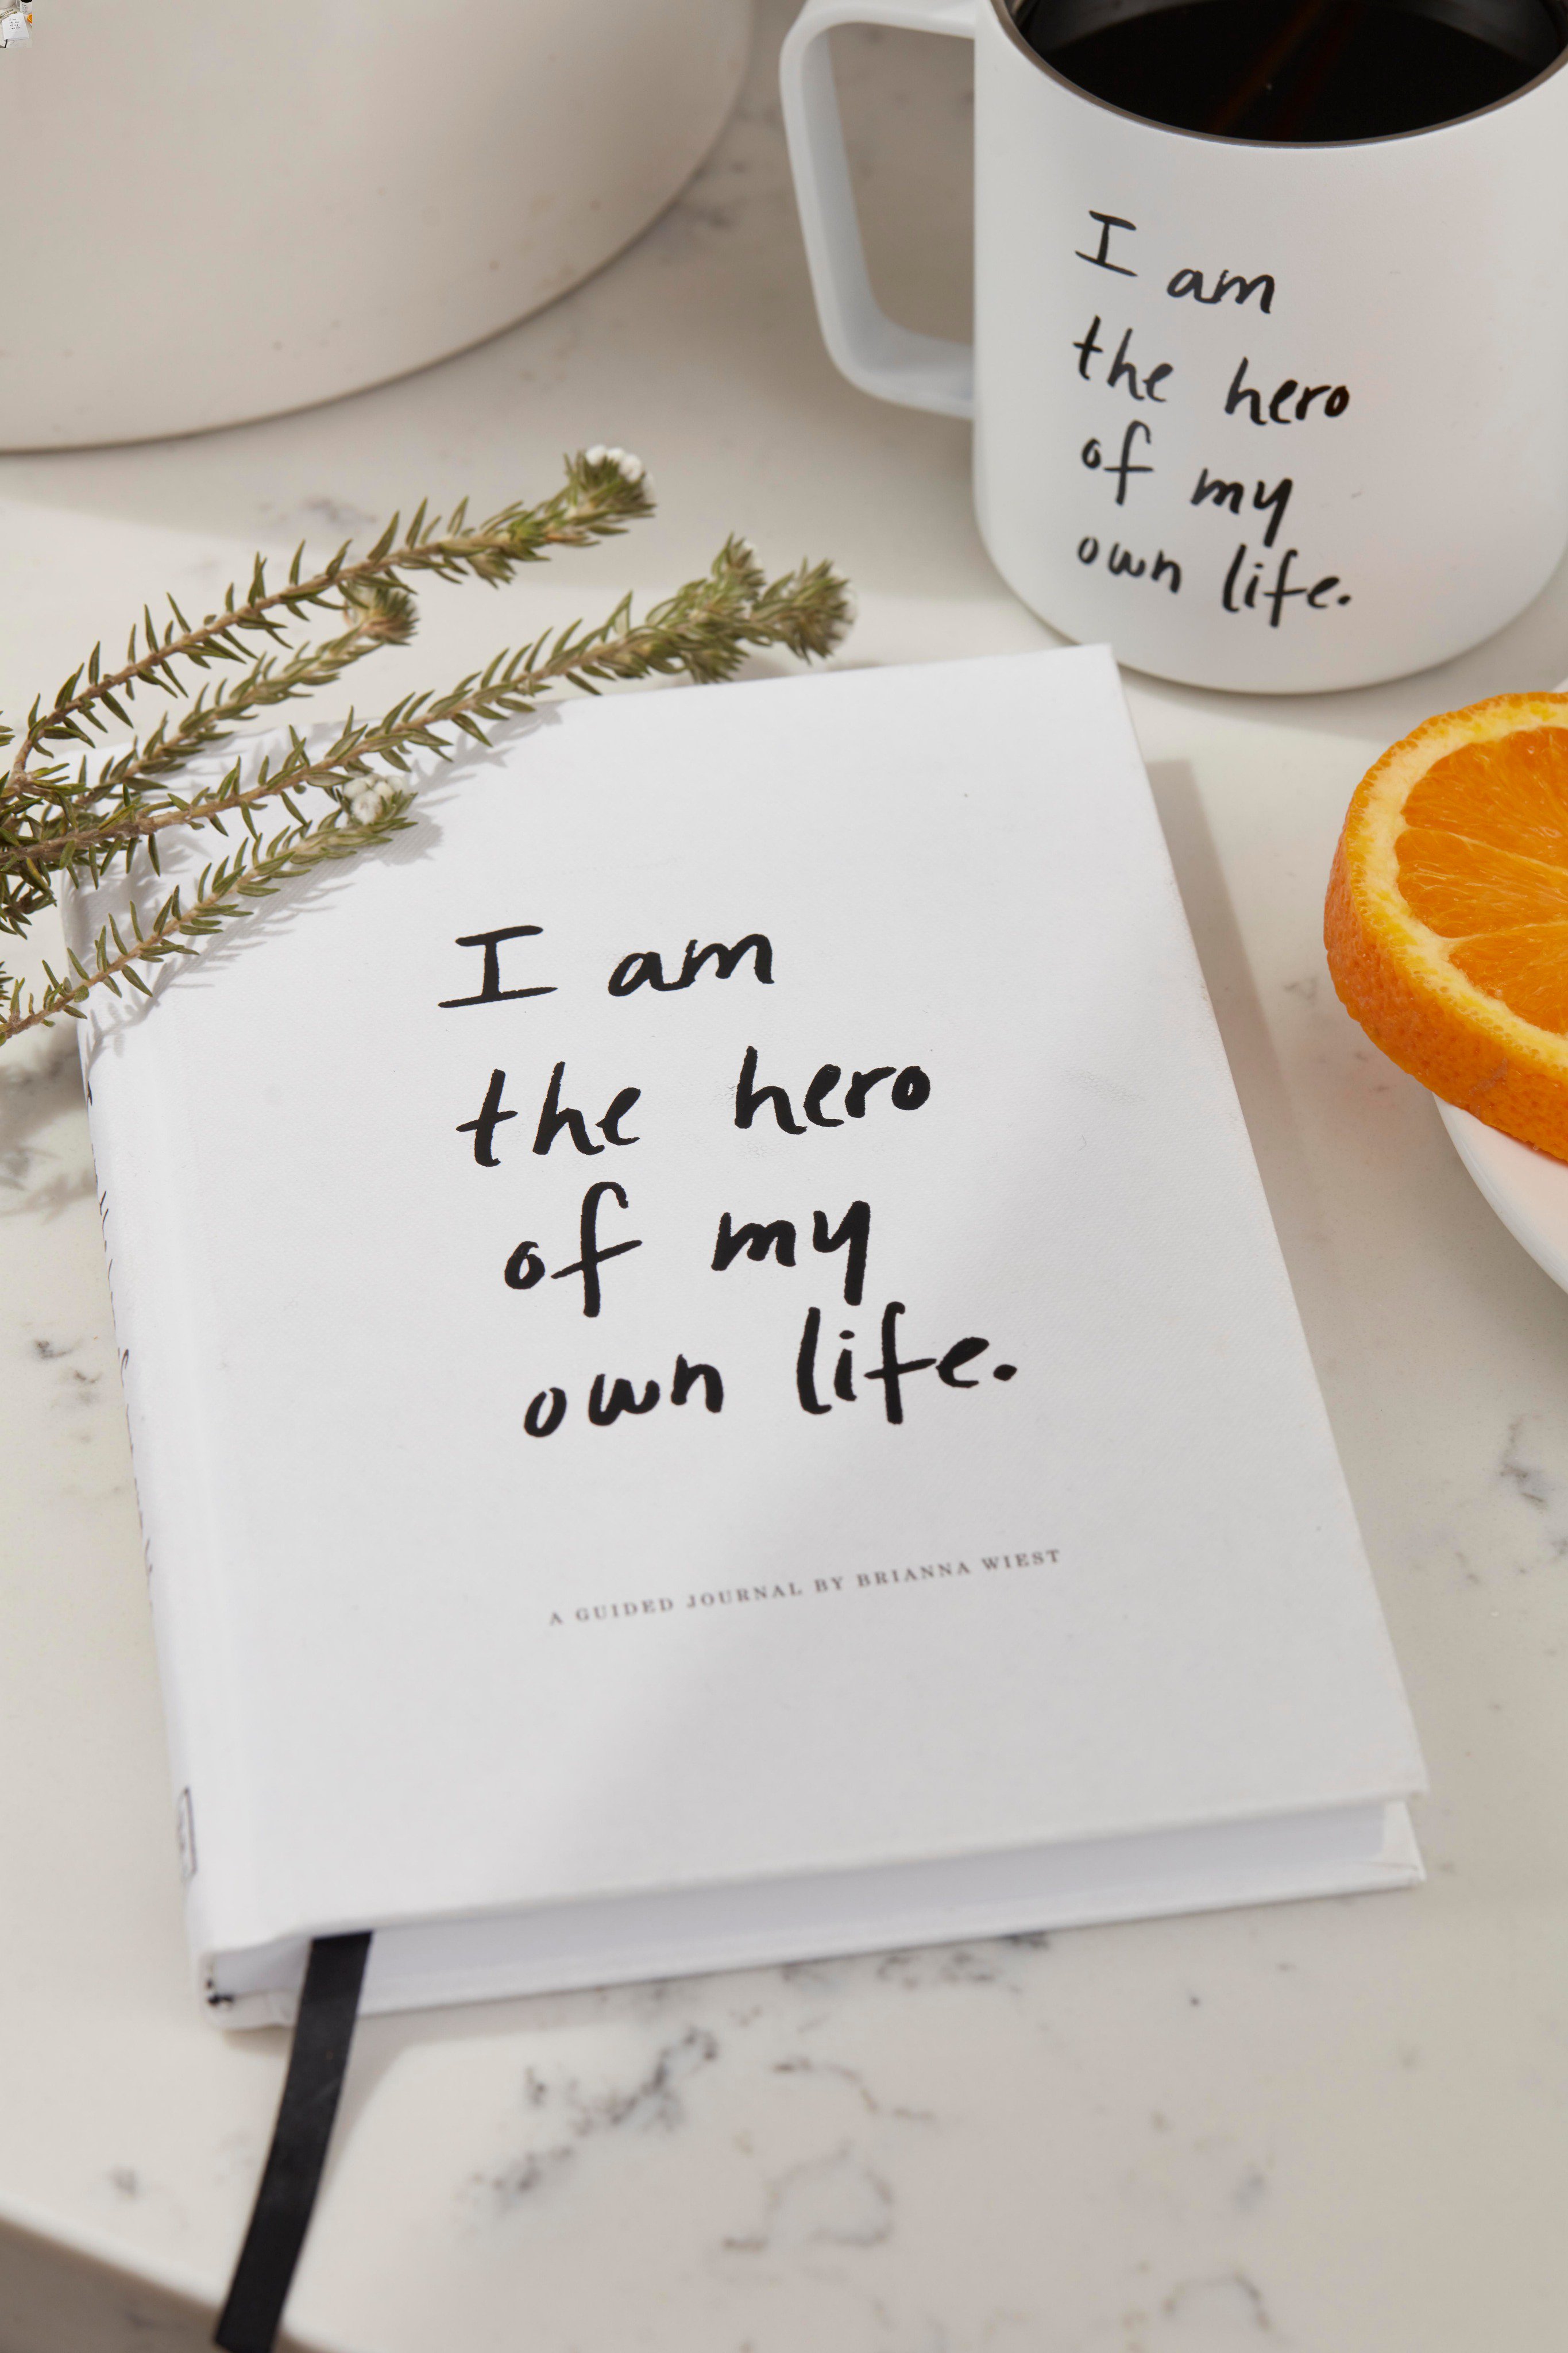 I am
the hero
of my
own life.
I am
the hero
of my
own life.
A GUIDED JOURNAL BY BRIANNA WIEST